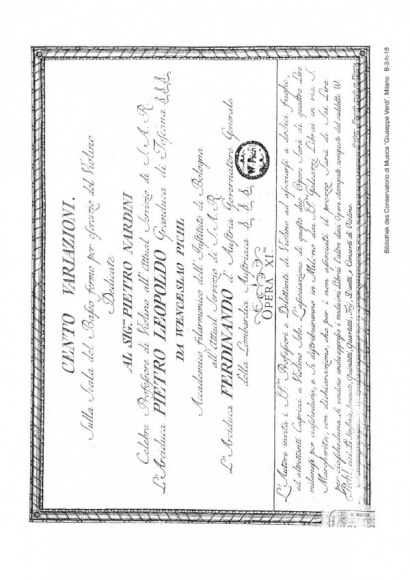 CENTO VARIAZIONI.
Sulla Scala del Basso fermo per esercizio del Violino
Dedicate
AL SIG.r PIETRO NARDINI
Celebre Professore di Violino all'Attual Servizio di S. A. R.
L'Arciduca PIETRO LEOPOLDO Granduca di Toscana &.&.&.
DA WENCESLAO PICHL
Accademico filarmonico dell'Instituto di Bologna
all'Attual Servizio di S. A. R.
L'Arciduca FERDINANDO d'Austria Governatore Generale
della Lombardia Austriaca &.&.&.
OPERA XI
L'Autore invita i S.ri Professori e Dilettanti di Violino ad
ed altrettanti Capricci a Violino Solo. di queste due Opere Sarà di quattro Lire
e Si distribuiranno in Milano dai Libraj in via S.
Margherita, con dichiarazione che per i non associati il prezzo Sarà di Sei Lire
per Si vendono medesimi Libraj l'altre due Opere stampate, composte dal suddetto W.
Pichl, cioè Quartetti, Duetti, e Concerti di Violino.
Bibliothek des Conservatorio di Musica "Giuseppe Verdi", Milano B-3-h-18